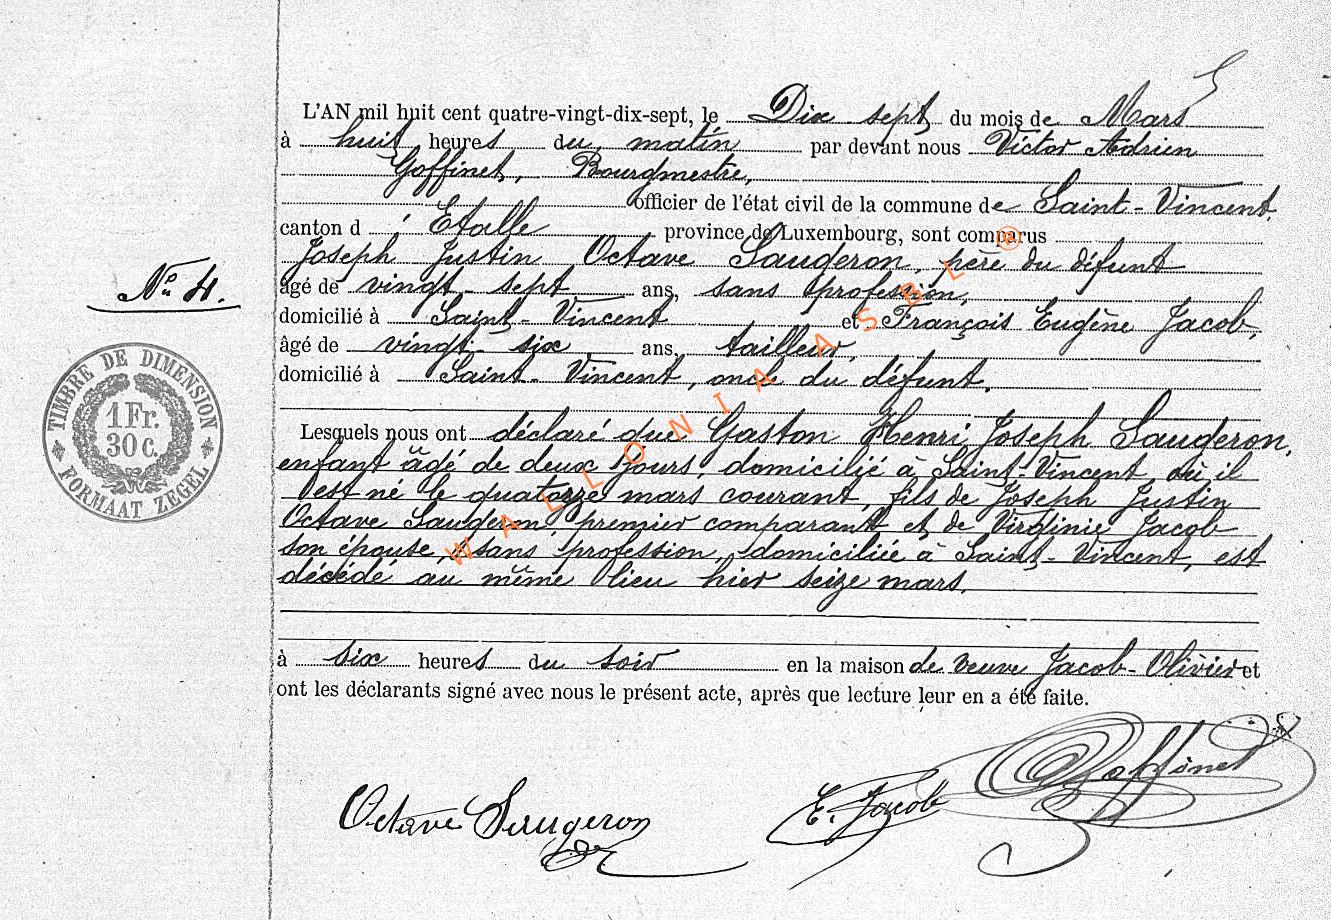 L'AN mil huit cent quatre-vingt-dix-sept, le Dix sept du mois de Mars
à huit heures du matin par devant nous Victor Adrien
Goffinet, Bourgmestre,
officier de l'état civil de la commune de Saint-Vincent,
canton d'Etalle province de Luxembourg, sont comparus
Joseph Justin Octave Saugeron, père du défunt
âgé de vingt-sept ans, sans profession,
domicilié à Saint-Vincent et François Eugène Jacob,
âgé de vingt-six ans, tailleur,
domicilié à Saint-Vincent, oncle du défunt,
Lesquels nous ont déclaré que Gaston Henri Joseph Saugeron,
enfant âgé de deux jours, domicilié à Saint-Vincent où il
est né le quatorze mars courant, fils de Joseph Justin
Octave Saugeron premier comparant et de Virginie Jacob
son épouse, sans profession, domiciliée à Saint-Vincent, est
décédé au même lieu hier seize mars,
à six heures du soir en la maison de veuve Jacob-Olivier et
ont les déclarants signé avec nous le présent acte, après que lecture leur en a été faite.
Octave Saugeron E. Jacob Goffinet
No 4.
TIMBRE DE DIMENSION
1 Fr.
30 c.
FORMAAT ZEGEL
WALLONIA ASBL ®